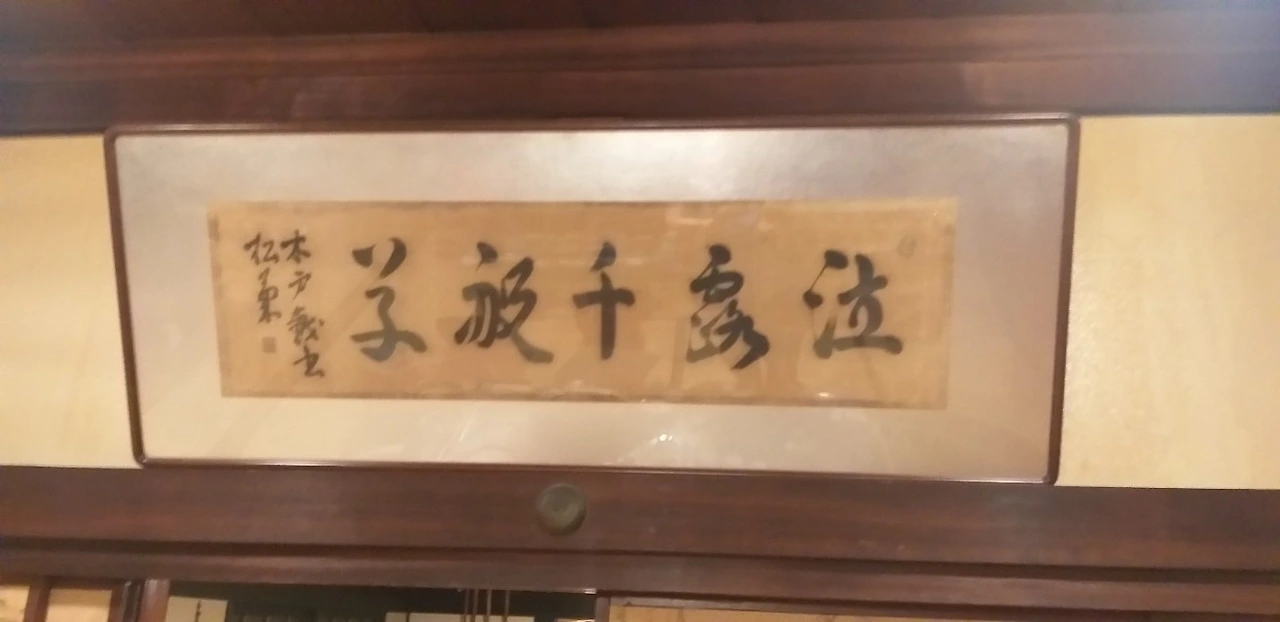 泣露千般草
木戸戯書
松菊